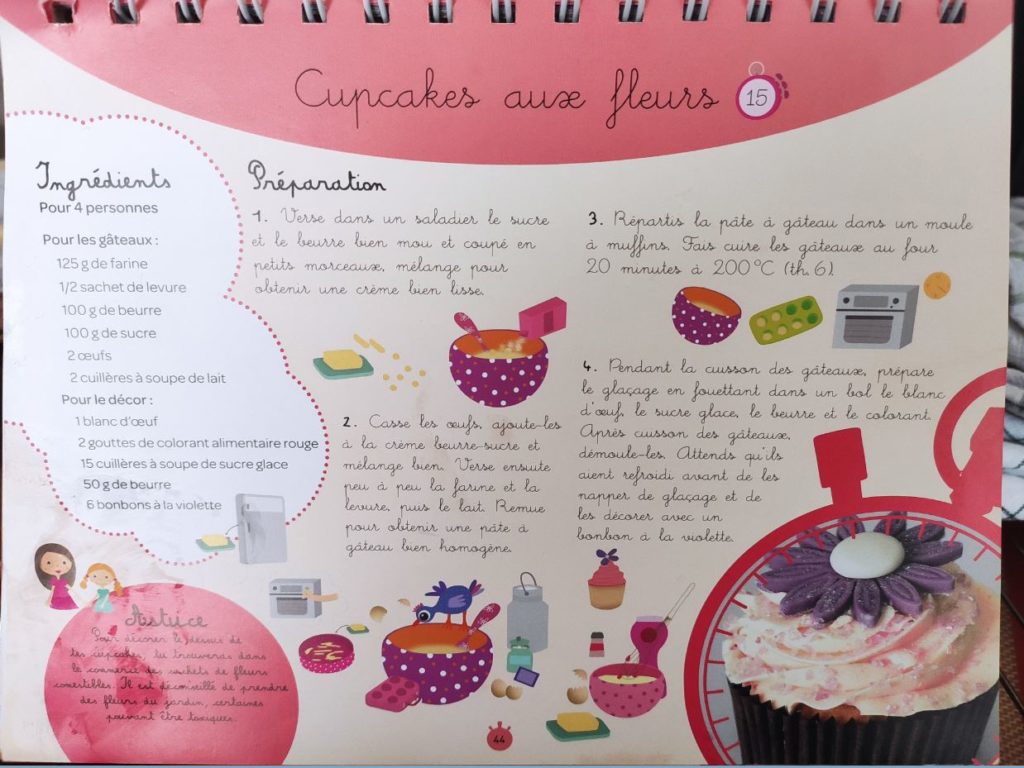 Cupcakes aux fleurs
15
Ingrédients
Pour 4 personnes
Pour les gâteaux :
125 g de farine
1/2 sachet de levure
100 g de beurre
100 g de sucre
2 œufs
2 cuillères à soupe de lait
Pour le décor :
1 blanc d'œuf
2 gouttes de colorant alimentaire rouge
15 cuillères à soupe de sucre glace
50 g de beurre
6 bonbons à la violette
Préparation
1. Verse dans un saladier le sucre
et le beurre bien mou et coupé en
petits morceaux, mélange pour
obtenir une crème bien lisse.
2. Casse les œufs, ajoute-les
à la crème beurre-sucre et
mélange bien. Verse ensuite
peu à peu la farine et la
levure, puis le lait. Remue
pour obtenir une pâte à
gâteau bien homogène.
3. Répartis la pâte à gâteau dans un moule
à muffins. Fais cuire les gâteaux au four
20 minutes à 200°C (th. 6).
4. Pendant la cuisson des gâteaux, prépare
le glaçage en fouettant dans un bol le blanc
d'œuf, le sucre glace, le beurre et le colorant.
Après cuisson des gâteaux,
démoule-les. Attends qu'ils
aient refroidi avant de les
napper de glaçage et de
les décorer avec un
bonbon à la violette.
Astuce
Pour décorer le dessus de
tes cupcakes, tu trouveras dans
le commerce des sachets de fleurs
comestibles. Il est déconseillé de prendre
des fleurs du jardin, certaines
pouvant être toxiques.
44